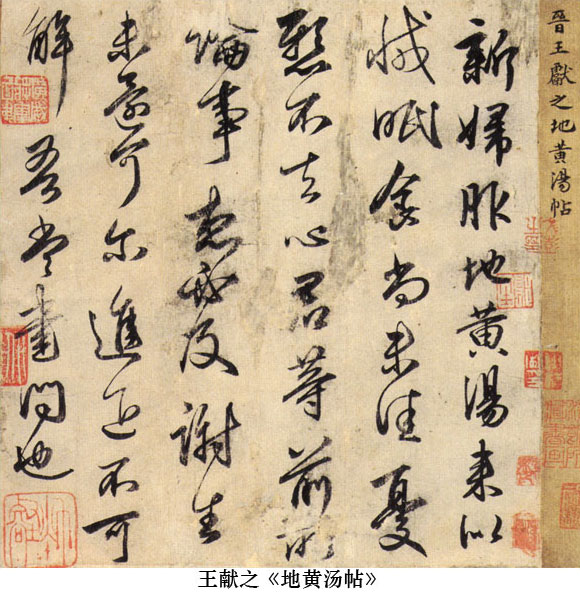 晉王獻之地黄湯帖
新婦服地黄湯来似
減眠食尚未佳憂
懸不去心君等前所
論事想必及謝生
未還可尔進退不可
解吾當書問也
王献之《地黄汤帖》